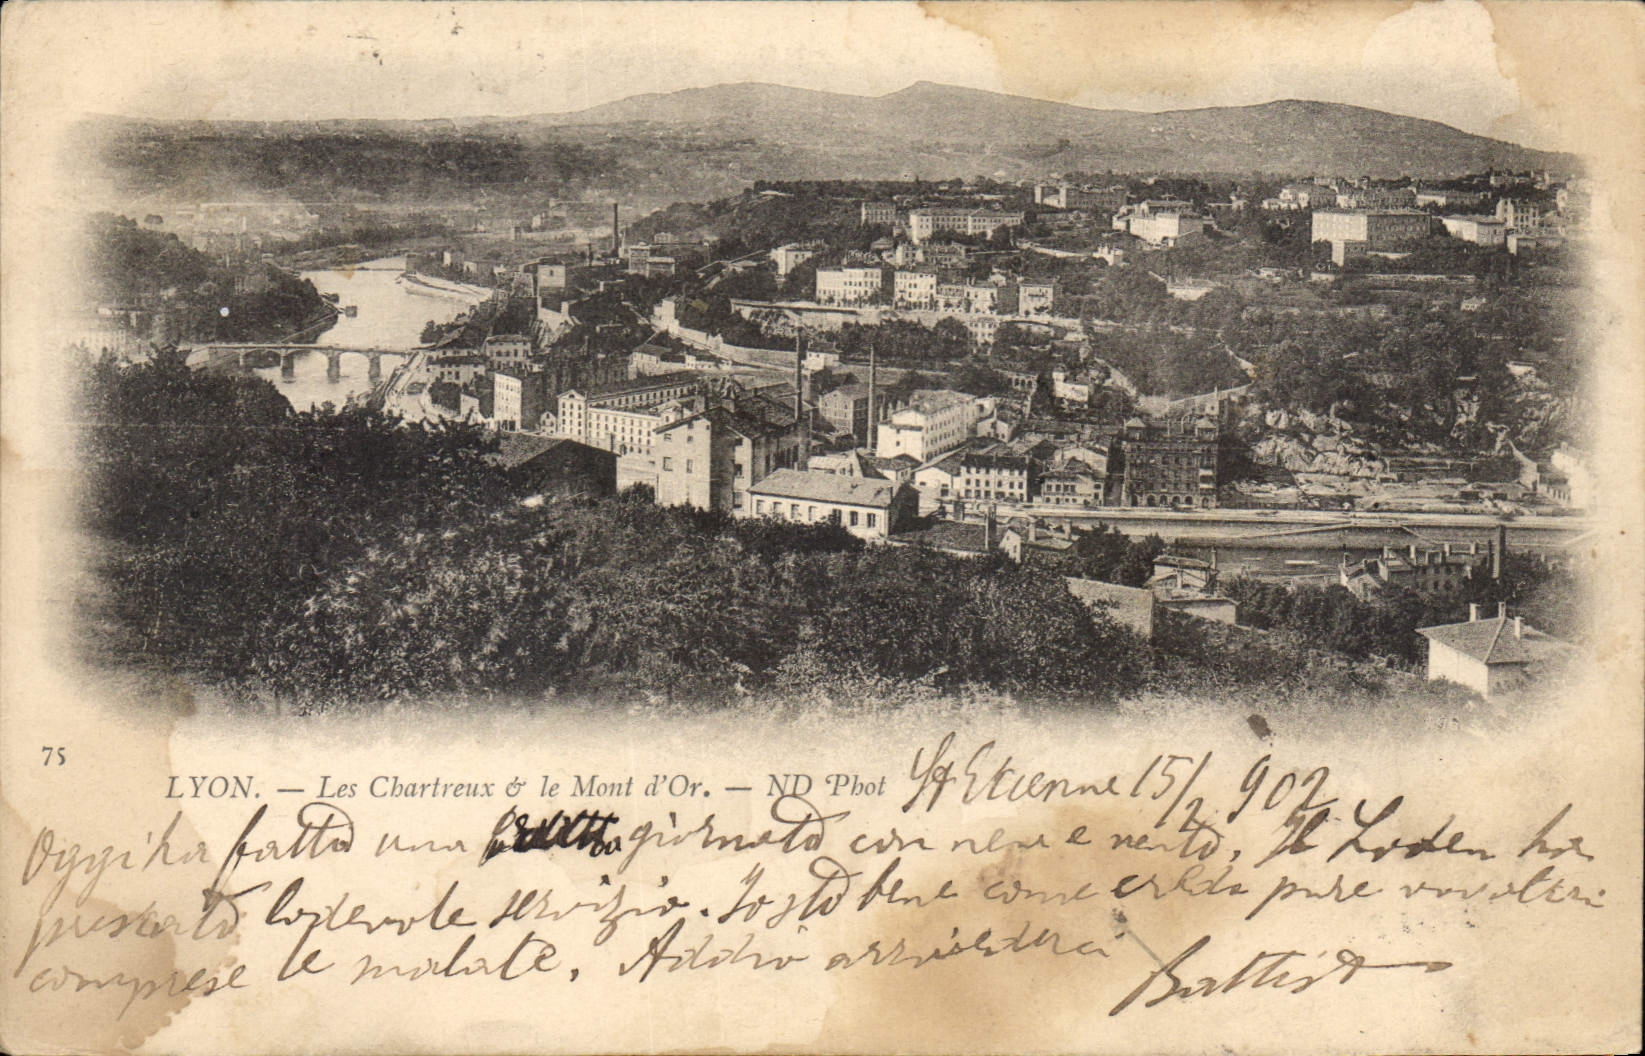 75
LYON. — Les Chartreux & le Mont d'Or. — ND Phot
St Etienne 15/2 902
Oggi ha fatto una giornata con neve e vento. Il Loden ha
prestato lodevole servizio. Io sto bene come credo pure voi altri
comprese le malate. Addio arrivederci
Battista